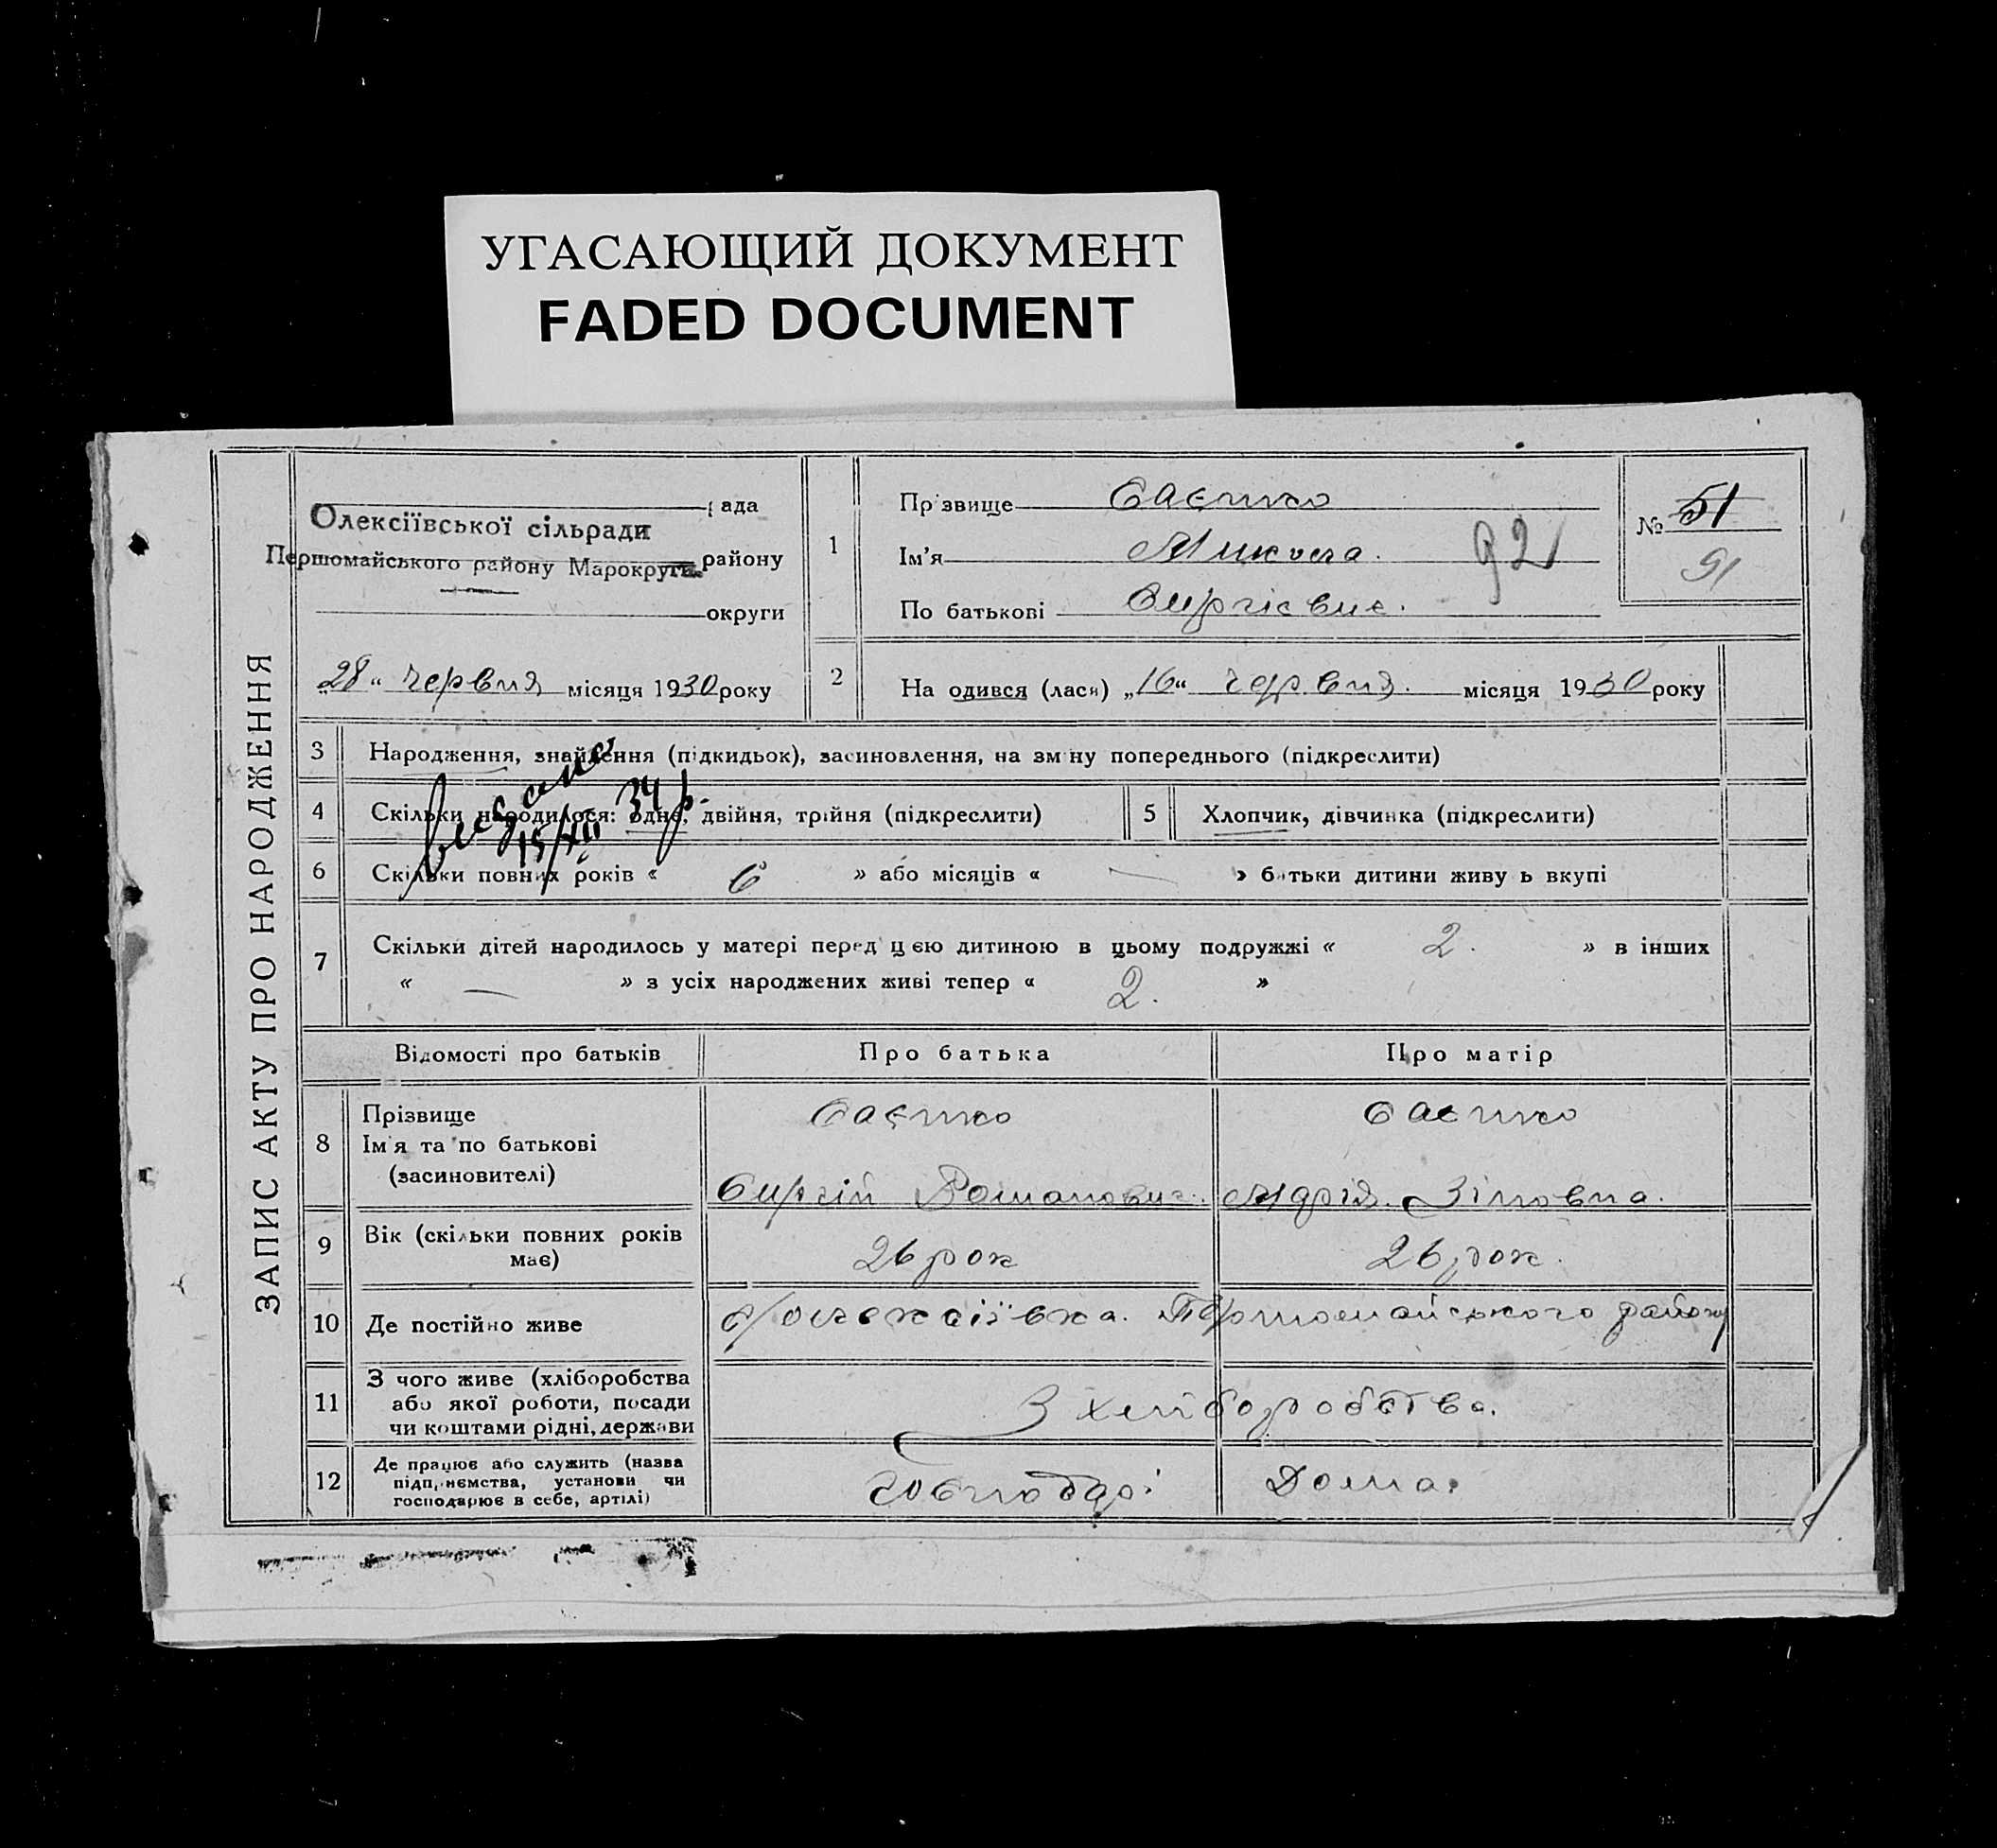 УГАСАЮЩИЙ ДОКУМЕНТ
FADED DOCUMENT
ЗАПИС АКТУ ПРО НАРОДЖЕННЯ
рада
Олексіївської сільради
Першомайського району Марокруги
району
округи
28 червня місяця 1930 року
1
Прізвище Саєнко
Ім'я Микола. 92
По батькові Сиргієвич.
№ 51
91
2 На одився (лася) „16“ червня. місяця 1930 року
3 Народження, знайдення (підкидьок), засиновлення, на зміну попереднього (підкреслити)
4 Скільки народилося: одне, двійня, трійня (підкреслити)
5 Хлопчик, дівчинка (підкреслити)
15/XII 34 р.
6 Скільки повних років « 6 » або місяців « — » батьки дитини живуть вкупі
7 Скільки дітей народилось у матері перед цією дитиною в цьому подружжі « 2. » в інших
« — » з усіх народжених живі тепер « 2. »
Відомості про батьків Про батька Про матір
8 Прізвище
Ім'я та по батькові
(засиновителі)
Саєнко
Сиргій Романович.
Саєнко
Марія. Зіновна.
9 Вік (скільки повних років
має)
26 рок
26 рок.
10 Де постійно живе
с/Олексіївка. Першомайського району
11 З чого живе (хліборобства
або якої роботи, посади
чи коштами рідні, держави
З хліборобства.
12 Де працює або служить (назва
підприємства, установи чи
господарює в себе, артілі)
Дома.